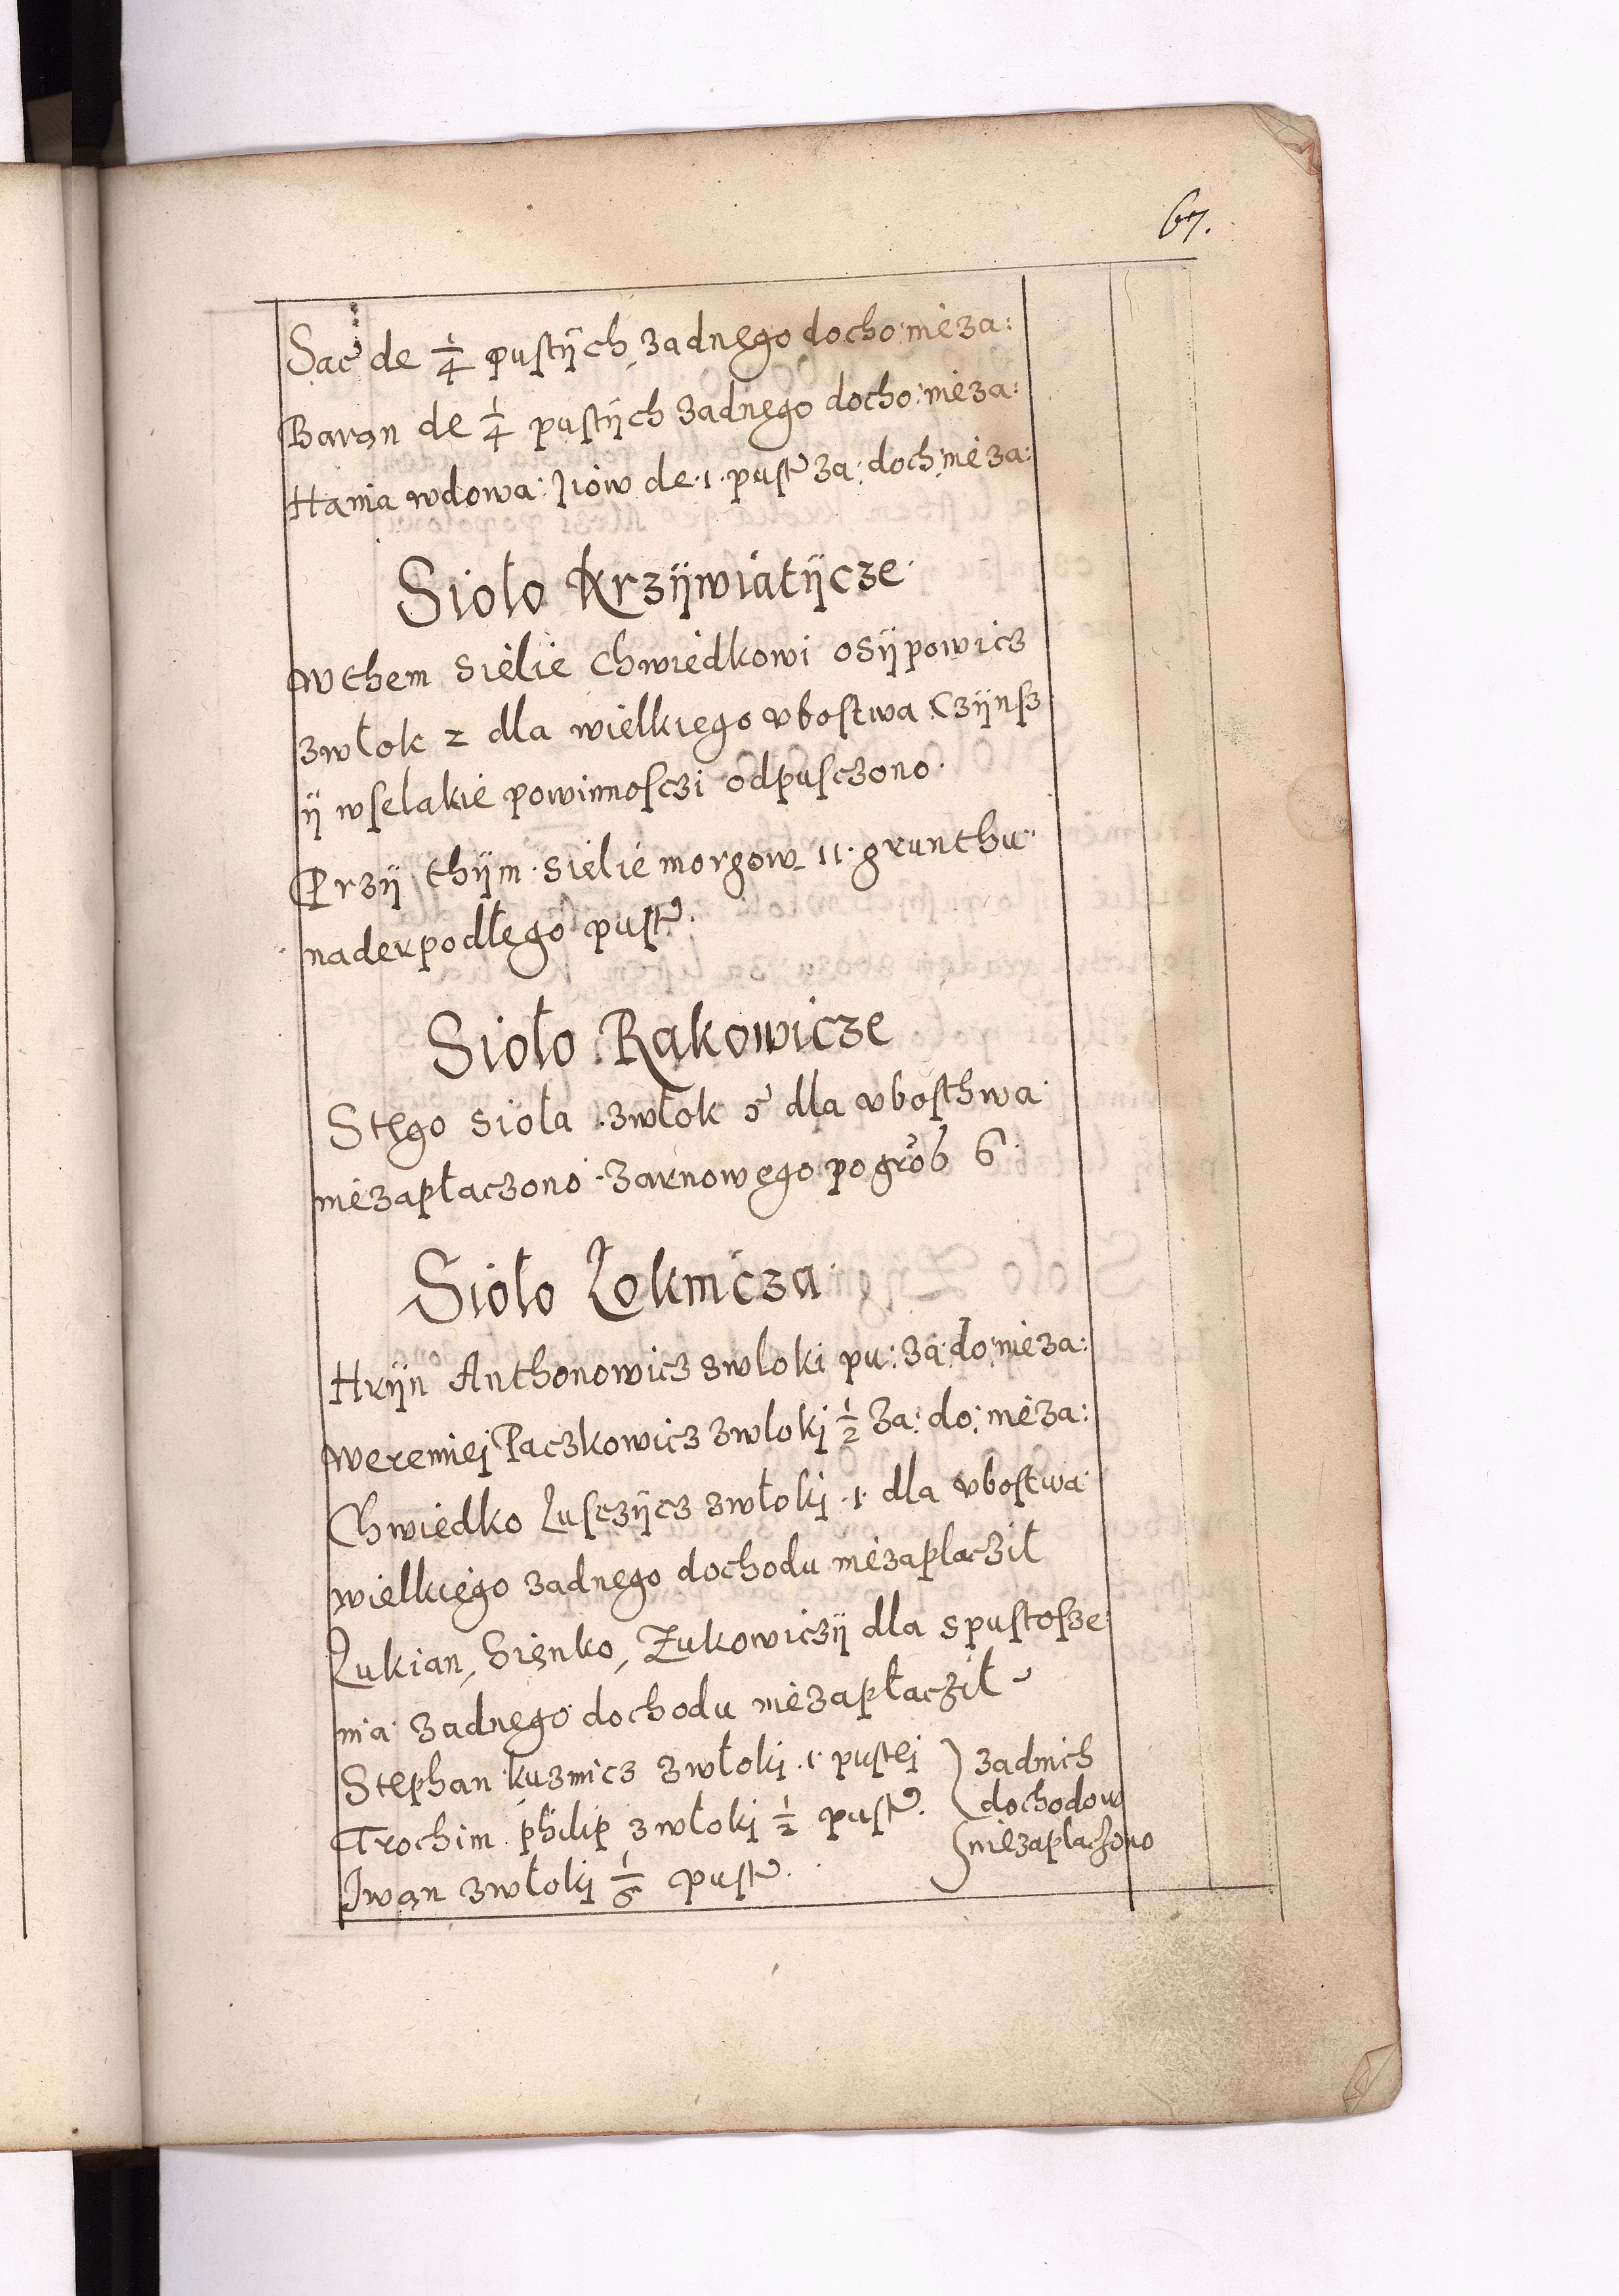 67.
Sac de 1/4 pustÿch zadnego docho: nieza:
Baran de 1/4 pustÿch zadnego docho: nieza:
Hania wdowa: Jiow de .1. pust za: doch: nieza:
Sioło Krzÿwiatÿcze
wthem sielie Chwiedkowi osÿpowicz
zwłok 2 dla wielkiego vbostwa Czÿnsz
ÿ wselakie powinnosczi odpusczono.
Przÿ thÿm sielie morgow 11 grunthu
naderpodłego pust.
Sioło Rakowicze
Stego sioła zwłok 5 dla vbosthwa
niezapłaczono zarnowego po groß 6
Sioło Łoknicza
Hrÿn Anthonowicz zwloki pu: za: do: nieza:
weremiej Paczkowicz zwlokj 1/2 za: do: nieza:
Chwiedko Lusczÿcz zwłokj .1. dla vbostwa
wielkiego zadnego dochodu niezaplacził
Łukian, Sienko, Zukowiczÿ dla spustosze
nia zadnego dochodu niezapłacził
Stephan kuzmicz zwłokj .1. pustej
Trochim philip zwłokj 1/2 pust.
Jwan zwłokj 1/5 pust.
zadnich
dochodow
niezaplaczono